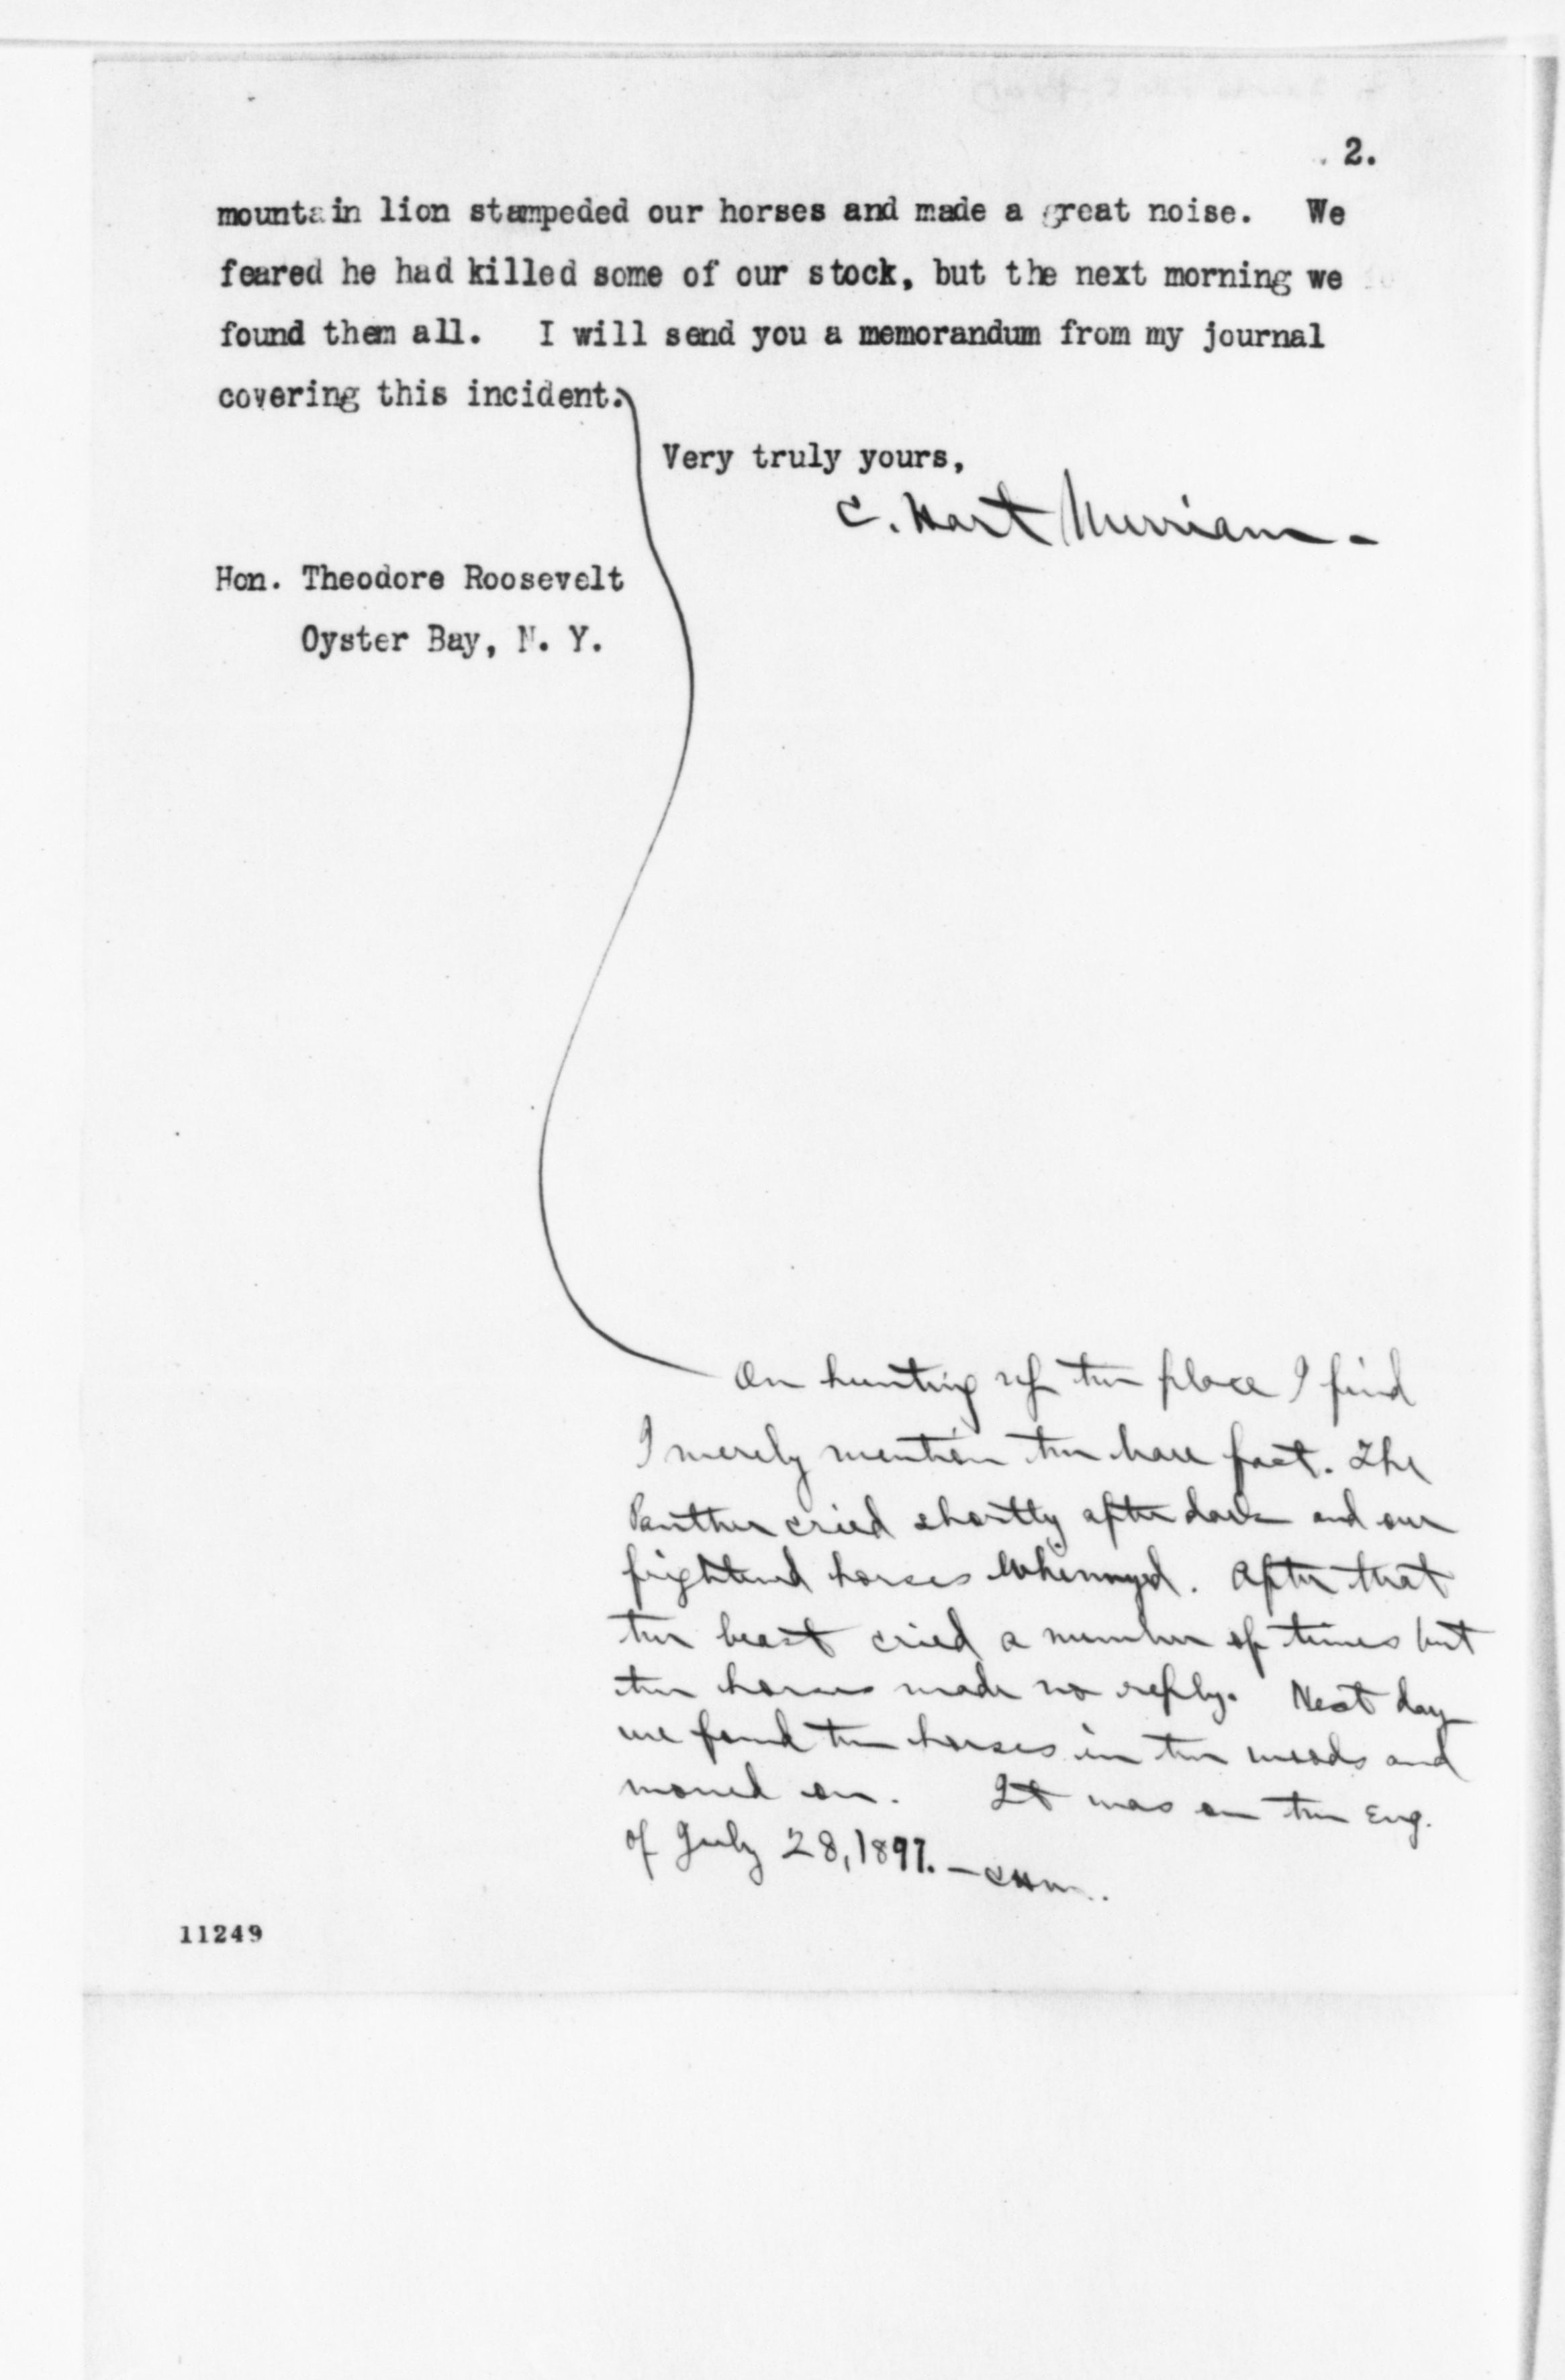 2.
mountain lion stampeded our horses and made a great noise. We
feared he had killed some of our stock, but the next morning we
found them all. I will send you a memorandum from my journal
covering this incident.
Very truly yours,
C. Hart Merriam
Hon. Theodore Roosevelt
Oyster Bay, N. Y.
On hunting up the place I find
I merely mention the bare fact. The
Panther cried shortly after dark and our
frightened horses whinnyed. After that
the beast cried a number of times but
the horses made no reply. Next day
we found the horses in the woods and
moved on. It was on the Evg.
of July 28, 1897. — CHM.
11249